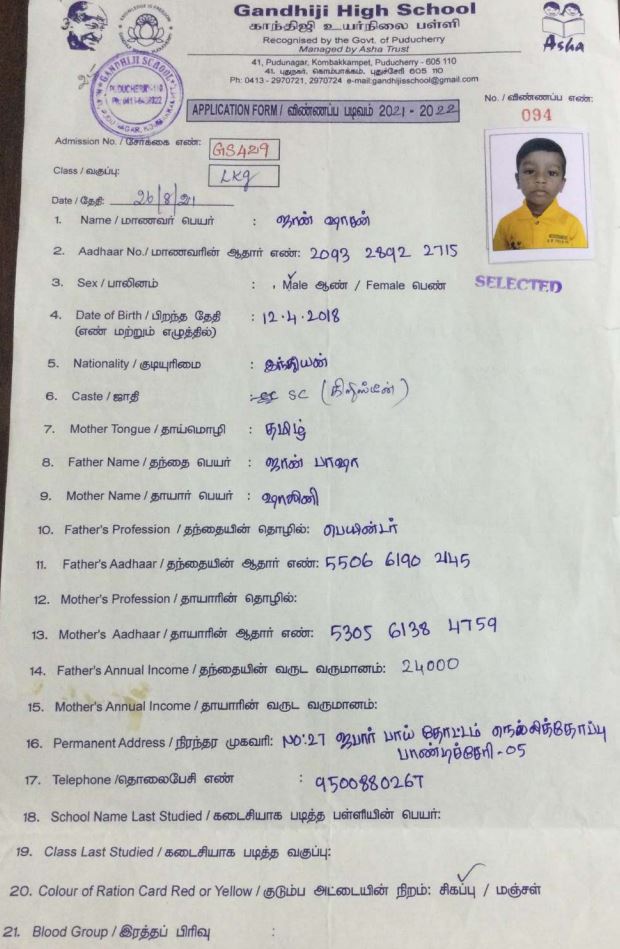 Gandhiji High School
காந்திஜி உயர்நிலை பள்ளி
Recognised by the Govt. of Puducherry
Managed by Asha Trust
Asha
41, Pudunagar, Kombakkampet, Puducherry - 605 110
41. புதுநகர், கொம்பாக்கம், புதுச்சேரி 605 110
Ph: 0413 - 2970721, 2970724 e-mail:gandhijisschool@gmail.com
GANDHIJI SCHOOL
PUDUCHERRY-110
APPLICATION FORM / விண்ணப்ப படிவம் 2021 - 2022
No. / விண்ணப்ப எண்:
094
Admission No. / சேர்க்கை எண்: GS429
Class / வகுப்பு: LKg
Date / தேதி: 26/8/21
SELECTED
1. Name / மாணவர் பெயர் : ஜான் ஷாதன்
2. Aadhaar No./ மாணவரின் ஆதார் எண்: 2093 2892 2715
3. Sex / பாலினம் : Male ஆண் / Female பெண்
4. Date of Birth / பிறந்த தேதி : 12.4.2018
(எண் மற்றும் எழுத்தில்)
5. Nationality / குடியுரிமை : இந்தியன்
6. Caste / ஜாதி : SC (கிறிஸ்டீன்)
7. Mother Tongue / தாய்மொழி : தமிழ்
8. Father Name / தந்தை பெயர் : ஜான் பாஷா
9. Mother Name / தாயார் பெயர் : ஷாலினி
10. Father's Profession / தந்தையின் தொழில்: பெயிண்டர்
11. Father's Aadhaar / தந்தையின் ஆதார் எண்: 5506 6190 2145
12. Mother's Profession / தாயாரின் தொழில்:
13. Mother's Aadhaar / தாயாரின் ஆதார் எண்: 5305 6138 4759
14. Father's Annual Income / தந்தையின் வருட வருமானம்: 24000
15. Mother's Annual Income / தாயாரின் வருட வருமானம்:
16. Permanent Address / நிரந்தர முகவரி: NO:27 ஜபார் பாய் தோட்டம் நெல்லித்தோப்பு
பாண்டிச்சேரி-05
17. Telephone /தொலைபேசி எண் : 9500880267
18. School Name Last Studied / கடைசியாக படித்த பள்ளியின் பெயர்:
19. Class Last Studied / கடைசியாக படித்த வகுப்பு:
20. Colour of Ration Card Red or Yellow / குடும்ப அட்டையின் நிறம்: சிகப்பு / மஞ்சள்
21. Blood Group / இரத்தப் பிரிவு :